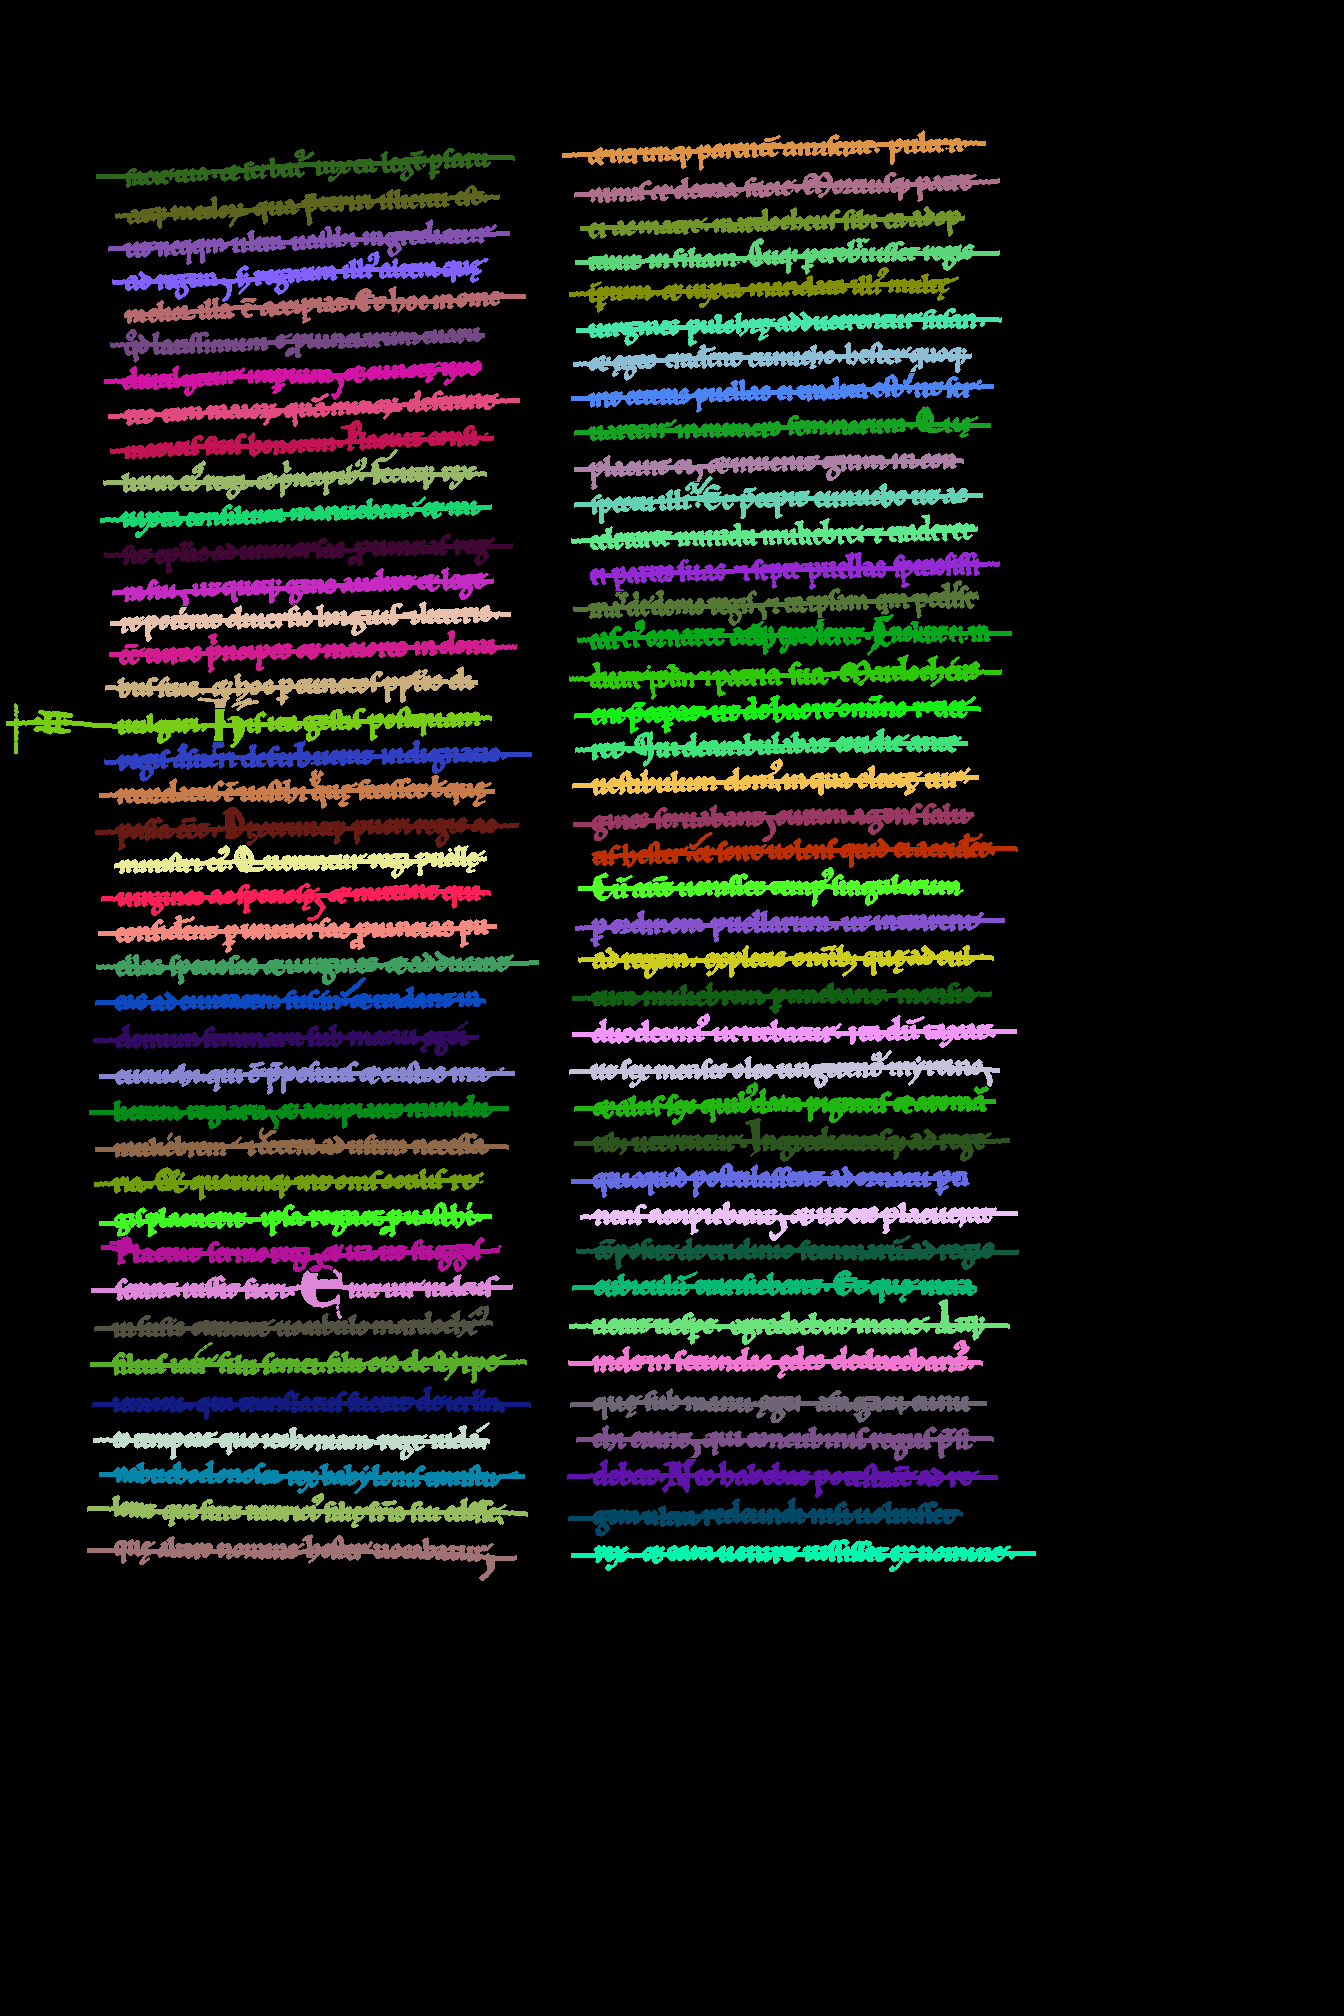 sarum atq; medoꝝ quā p̄teriri illicitum est
ut neq̄q̄m ultra uasthi ingrediatur
ad regem, s; regnum illi᾽ altera quę
melior illa ē accipiat Et hoc in omne
qđ latissimum ē prouinciarum tuarum
diuulgetur imꝑium, et cunctę uxo
res tam maioꝝ quā minoꝝ deferant
maritis suis honorem Placuit consi
lium ei᾽ regi et principib᾽ fecitq; rex
iuxta consilium manuchan et mi
sit ep̄las ad uniuersas prouincias reg
ni sui, ut queq; gens audire et lege
re poterat diuersis linguis et litteris
ēē uiros principes ac maiores in domi
bus suis et hoc per cunctos pp̄los di
uulgari His ita gestis postquam
regis assueri deferbuerat indignatio
passa eēt Dixeruntq; pueri regis ac
ministri ei᾽ Querantur regi puellę
uirgines ac speciosę, et mittant qui
considerent ꝑ uniuersas prouincias pu
ellas speciosas et uirgines et adducant
eas ad ciuitatem susan et tradant in
domum feminarum sub manu egei
eunuchi qui ē p̄positus et custos mu
lierum regiarum, et accipiant mundum
muliebrem et cetera ad usum necessa
ria Et quecumq; inter oms oculis re
gis placuerit ipsa regnet pro uasthi
Placuit sermo regi, et ita ut sugges
serant iussit fieri Erat uir iudeus
in susis ciuitate uocabulo mardoche᾽
filius iair filii semei filii cis de stirpe
iemini qui translatus fuerat de ierlm
eo tempore quo iechoniam regem iudę
nabuchodonosor rex babylonis transtu
lerat qui fuit nutricius filię fr̄is sui edisse
quę altero nomine hester uocabatur,
et utrumq; parentē amiserat pulcra n
imis et decora facie Mortuisq; patre
et matre mardocheus sibi eā adop
tauit in filiam Cumq; percrebruisset regis
imꝑium et iuxta mandatum illi᾽ multę
uirgines pulchrę adducerentur susan,
et egeo traderentur eunucho hester quoq;
int̄ ceteras puellas ei tradita est ut ser
uaretur in numero feminarum Quę
placuit ei, et inuenit gratiam in con
spectu illi᾽ Et p̄cepit eunucho ut ac
celeraret mundū muliebrē et traderet
ei partes suas et septē puellas speciosissi
mas de domo regis, et tam ipsam quam pedisse
quas ei᾽ ornaret atq; excoleret Quę noluit in
dicare ei ppl̄m et patriā suā Mardocheus
em̄ p̄ceperat ut de hac re omīno reti
ceret Qui deambulabat cotidie ante
uestibulum dom᾽ in qua electę uir
gines seruabant, curam agens salu
tis hester et scire uolens quid ei accideret
Cū aūt uenisset temp᾽ singularum
ꝑ ordinem puellarum ut intrarent
ad regem expletis omīb; quę ad cul
tum muliebrem pertinebant mensis
duodecim᾽ uertebatur ita dū taxat
ut sex menses oleo ungerentᵘʳ myrtino,
et aliis sex quib᾽dam pigmentis et aroma
tib; uterentur Ingredientesq; ad regē
quicquid postulassent ad ornatū ꝑti
nens accipiebant, et ut eis placuerat
cōpositę de triclinio feminarū ad regis
cubiculū transiebant Et quę intra
uerat uespere egrediebatur mane Atq;
inde in secundas ędes deducebantᵘʳ
quę sub manu sagazi eunu
chi erant, qui concubinis regis p̄si
debat Nec habebat potestatē ad re
gem ultra redeundi nisi uoluisset
rex et eam uenire iussisset ex nomine